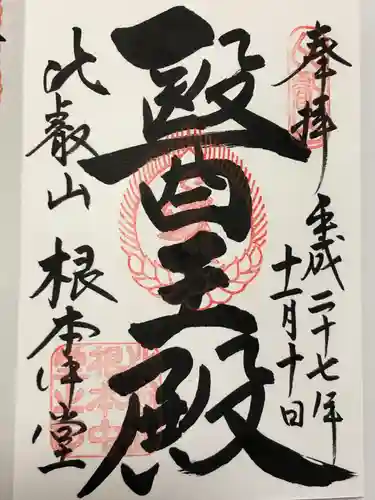 奉拝
平成二十七年
十一月十日
醫王殿
比叡山
根本中堂